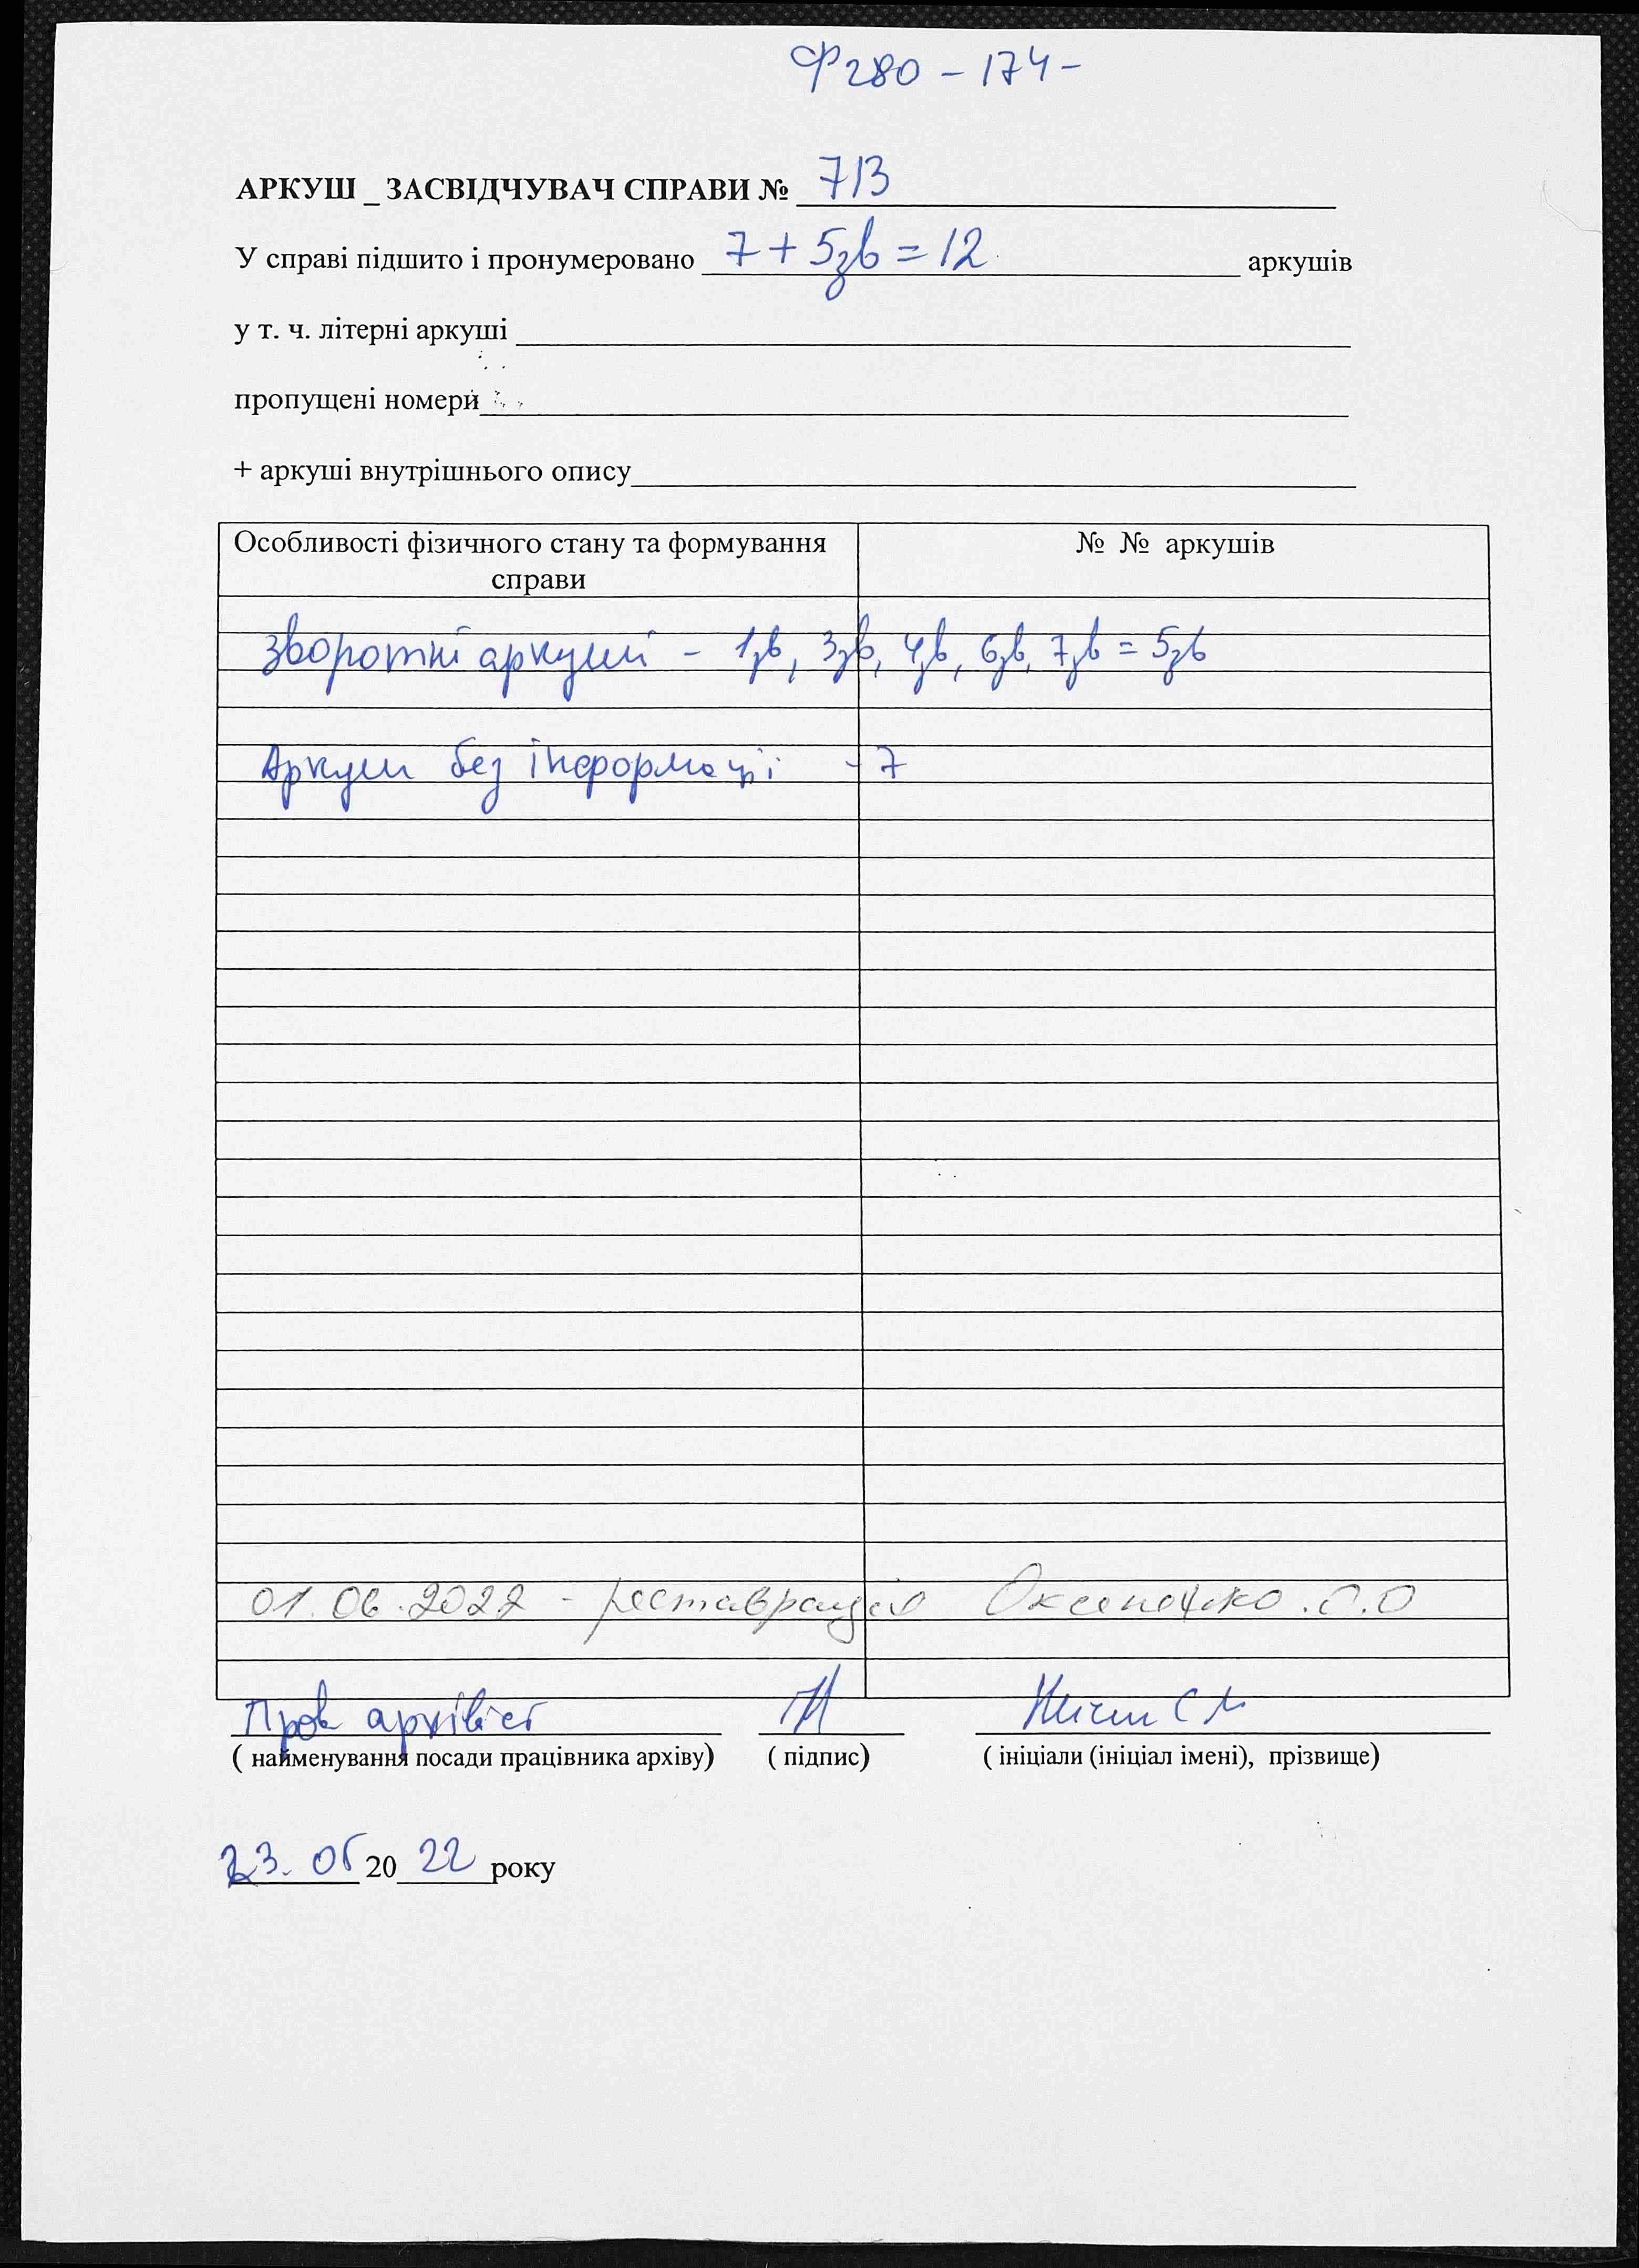 Ф280 - 174 -
АРКУШ _ ЗАСВІДЧУВАЧ СПРАВИ № 713
У справі підшито і пронумеровано 7 + 5зв = 12 аркушів
у т. ч. літерні аркуші
пропущені номери
+ аркуші внутрішнього опису
Особливості фізичного стану та формування справи
№ № аркушів
зворотні аркуші - 1зв, 3зв, 4зв, 6зв, 7зв = 5зв
Аркуш без інформації - 7
01.06.2022 - реставрація
Пров архівіст
( найменування посади працівника архіву) ( підпис) ( ініціали (ініціал імені), прізвище)
23. 05 20 22 року